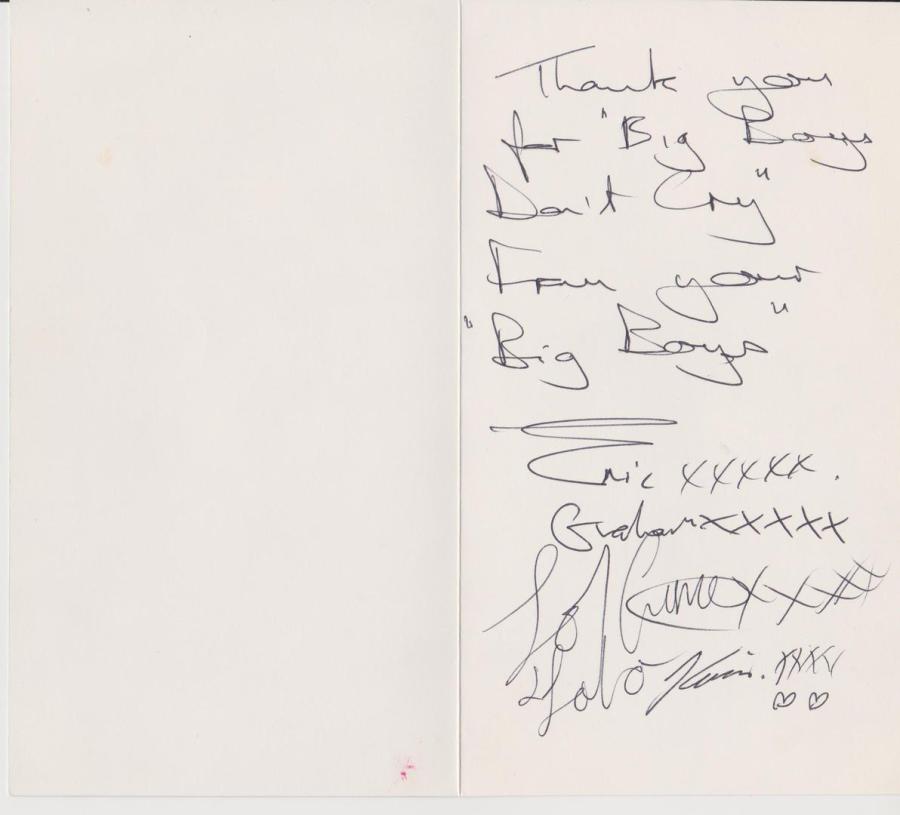 Thank you
for "Big Boys
Don't Cry"
From your
"Big Boys"
Eric xxxxx.
Graham xxxxx
Lol Creme xxxx
Kevin. xxxx